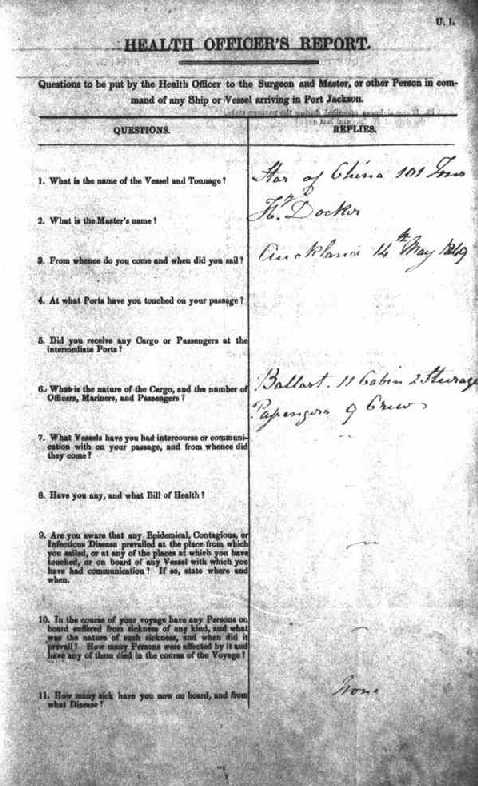 U. 1.
HEALTH OFFICER'S REPORT.
Questions to be put by the Health Officer to the Surgeon and Master, or other Person in com-
mand of any Ship or Vessel arriving in Port Jackson.
QUESTIONS.
REPLIES.
1. What is the name of the Vessel and Tonnage?
Star of China 101 Tons
2. What is the Master's name?
Docker
3. From whence do you come and when did you sail?
Auckland 14th May 1849
4. At what Ports have you touched on your passage?
5. Did you receive any Cargo or Passengers at the
intermediate Ports?
6. What is the nature of the Cargo, and the number of
Officers, Mariners, and Passengers?
Ballast. 11 Cabin 2 Steerage
Passengers 9 Crew
7. What Vessels have you had intercourse or communi-
cation with on your passage, and from whence did
they come?
8. Have you any, and what Bill of Health?
9. Are you aware that any Epidemical, Contagious, or
Infectious Disease prevailed at the place from which
you sailed, or at any of the places at which you have
touched, or on board of any Vessel with which you
have had communication? If so, state where and
when.
10. In the course of your voyage have any Persons on
board suffered from sickness of any kind, and what
was the nature of such sickness, and when did it
prevail? How many Persons were affected by it and
have any of them died in the course of the Voyage?
11. How many sick have you now on board, and from
what Disease?
None